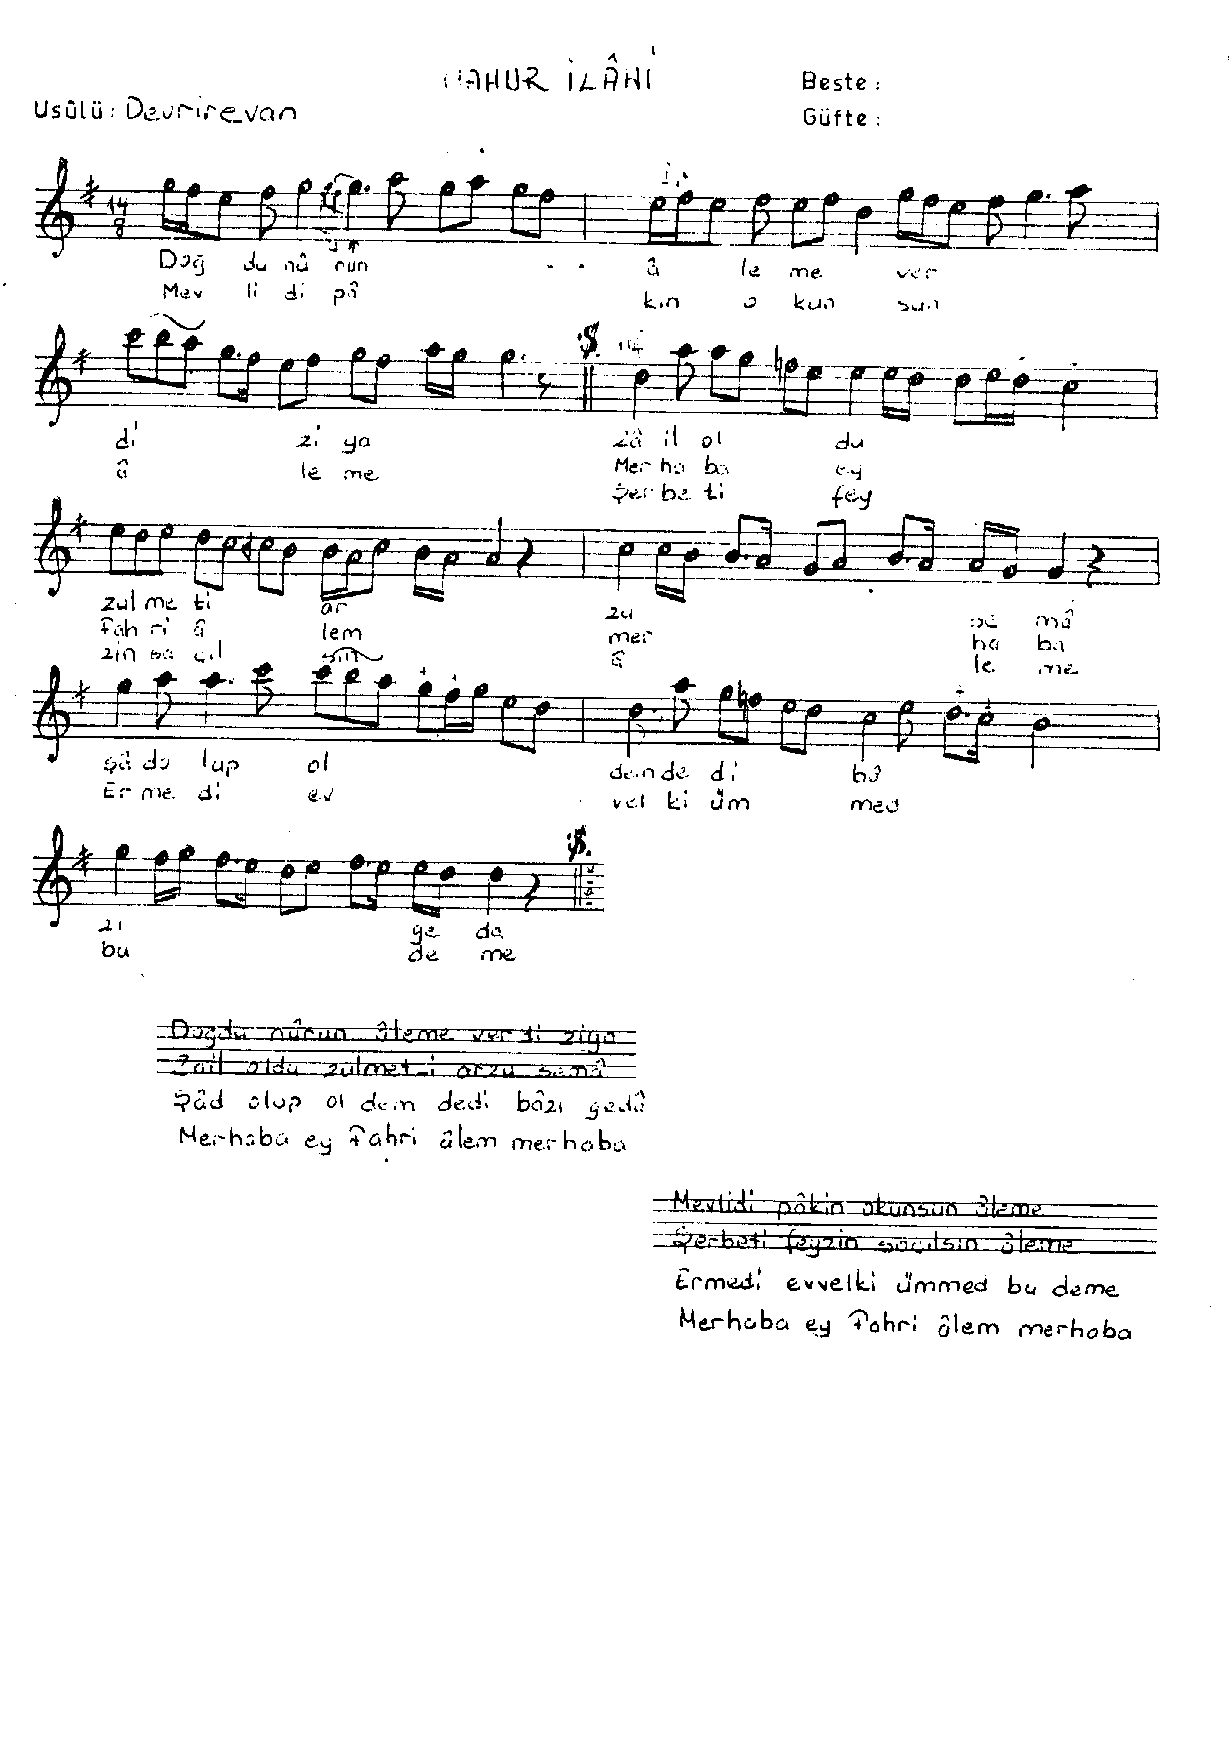 MAHUR İLÂHİ
Beste :
Usûlü : Devrirevan
Güfte :
14
8
Doğ du nû run â le me ver
Mev li di pâ kin o kun sun
di zi ya Zâ il ol du
â le me Mer ha ba ey
Şer be ti fey
zul me ti ar zu se mâ
Fah ri â lem mer ha ba
zin sa çıl sın â le me
Şâ do lup ol dem de di bâ
Er me di ev vel ki üm med
zı ge da
bu de me
Doğdu nûrun âleme verdi ziya
Zail oldu zulmet-i arzu semâ
Şâd olup ol dem dedi bâzı gedâ
Merhaba ey Fahri âlem merhaba
Mevlidi pâkin okunsun âleme
Şerbeti feyzin saçılsın âleme
Ermedi evvelki ümmed bu deme
Merhaba ey Fahri âlem merhaba